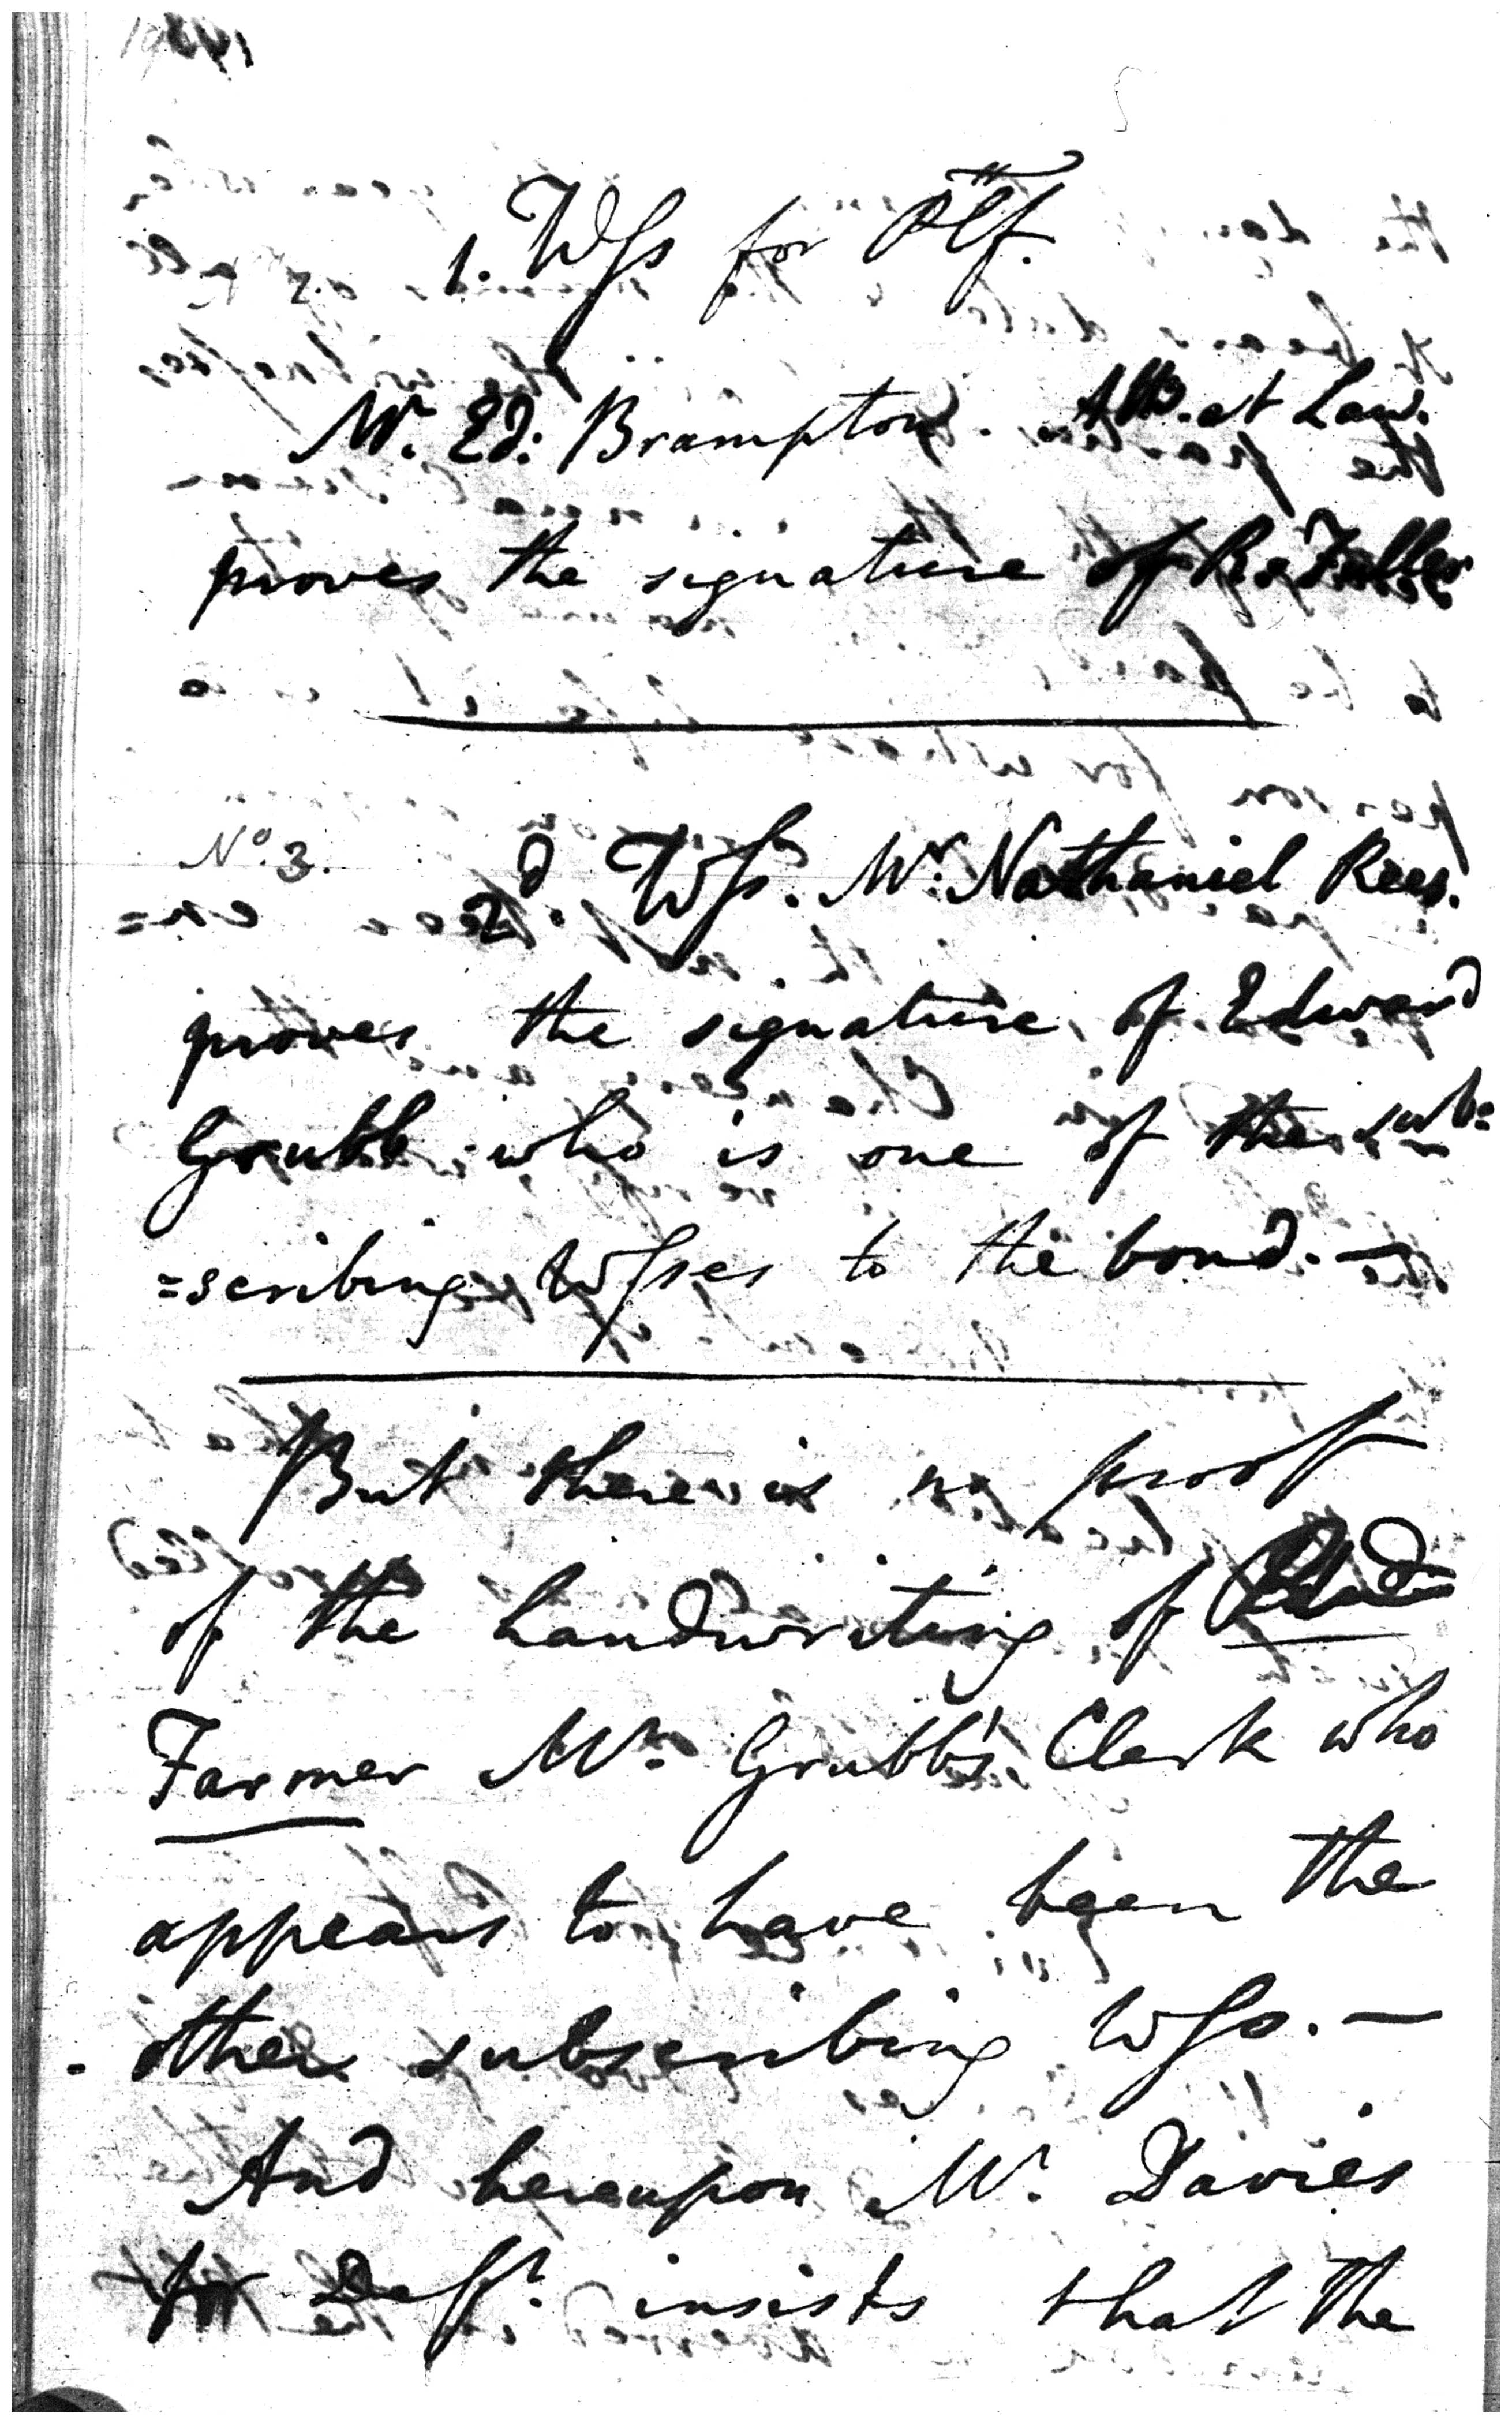 1. Wſs for Pltf.
Mr. Ed: Brampton. Atto. at Law.
proves the signature of R. Fuller
No. 3.
2d. Wſs. Mr. Nathaniel Rees.
proves the signature of Edward
Grubb who is one of the sub=
=scribing Wſses to the bond. —
But there is no proof
of the handwriting of
Farmer Mr. Grubb's Clerk who
appears to have been the
other subscribing Wſs. —
And hereupon Mr. Davies
for Defft. insists that the